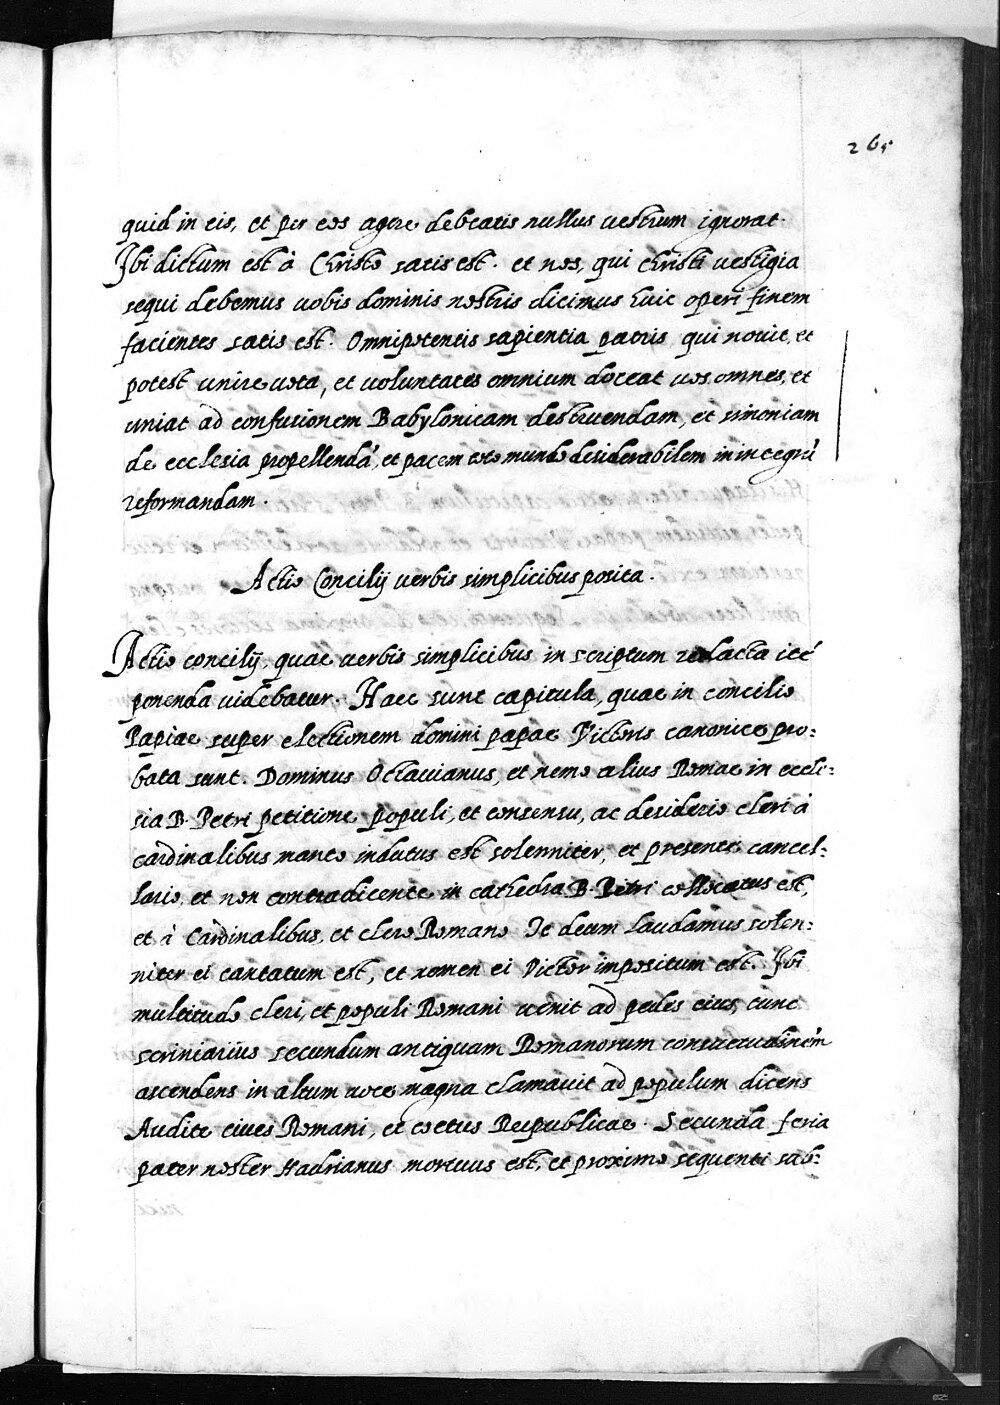 265
quid in eis, et per eos agere debeatis nullus uestrum ignorat.
Ibi dictum est à Christo satis est. et nos, qui Christi uestigia
sequi debemus uobis dominis nostris dicimus huic operi finem
facientes satis est. Omnipotentis sapientia patris qui nouit, et
potest unire uota, et uoluntates omnium doceat uos omnes, et
uniat ad confusionem Babylonicam destruendam, et simoniam
de ecclesia propellendã, et pacem toto mundo desiderabilem in integrũ
reformandam.
Actio Concilij uerbis simplicibus posita.
Actio concilij, quae uerbis simplicibus in scriptum redacta
ponenda uidebatur. Haec sunt capitula, quae in concilio
Papiae super electionem domini papae Victoris canonice pro:
bata sunt. Dominus Octauianus, et nemo alius Romae in eccle:
sia B. Petri petitione populi, et consensu, ac desiderio cleri à
cardinalibus manto indutus est solenniter, et presente cancel:
lario, et non contradicente in cathedra B. Petri collocatus est,
et à Cardinalibus, et clero Romano Te deum laudamus solen:
niter ei cantatum est, et nomen ei Victor impositum est. Ibi
multitudo cleri, et populi Romani uenit ad pedes eius, tunc
scriniarius secundum antiquam Romanorum consuetudinem
ascendens in altum uoce magna clamauit ad populum dicens
Audite ciues Romani, et coetus Reipublicae. Secunda feria
pater noster Hadrianus mortuus est, et proximo sequenti sab: